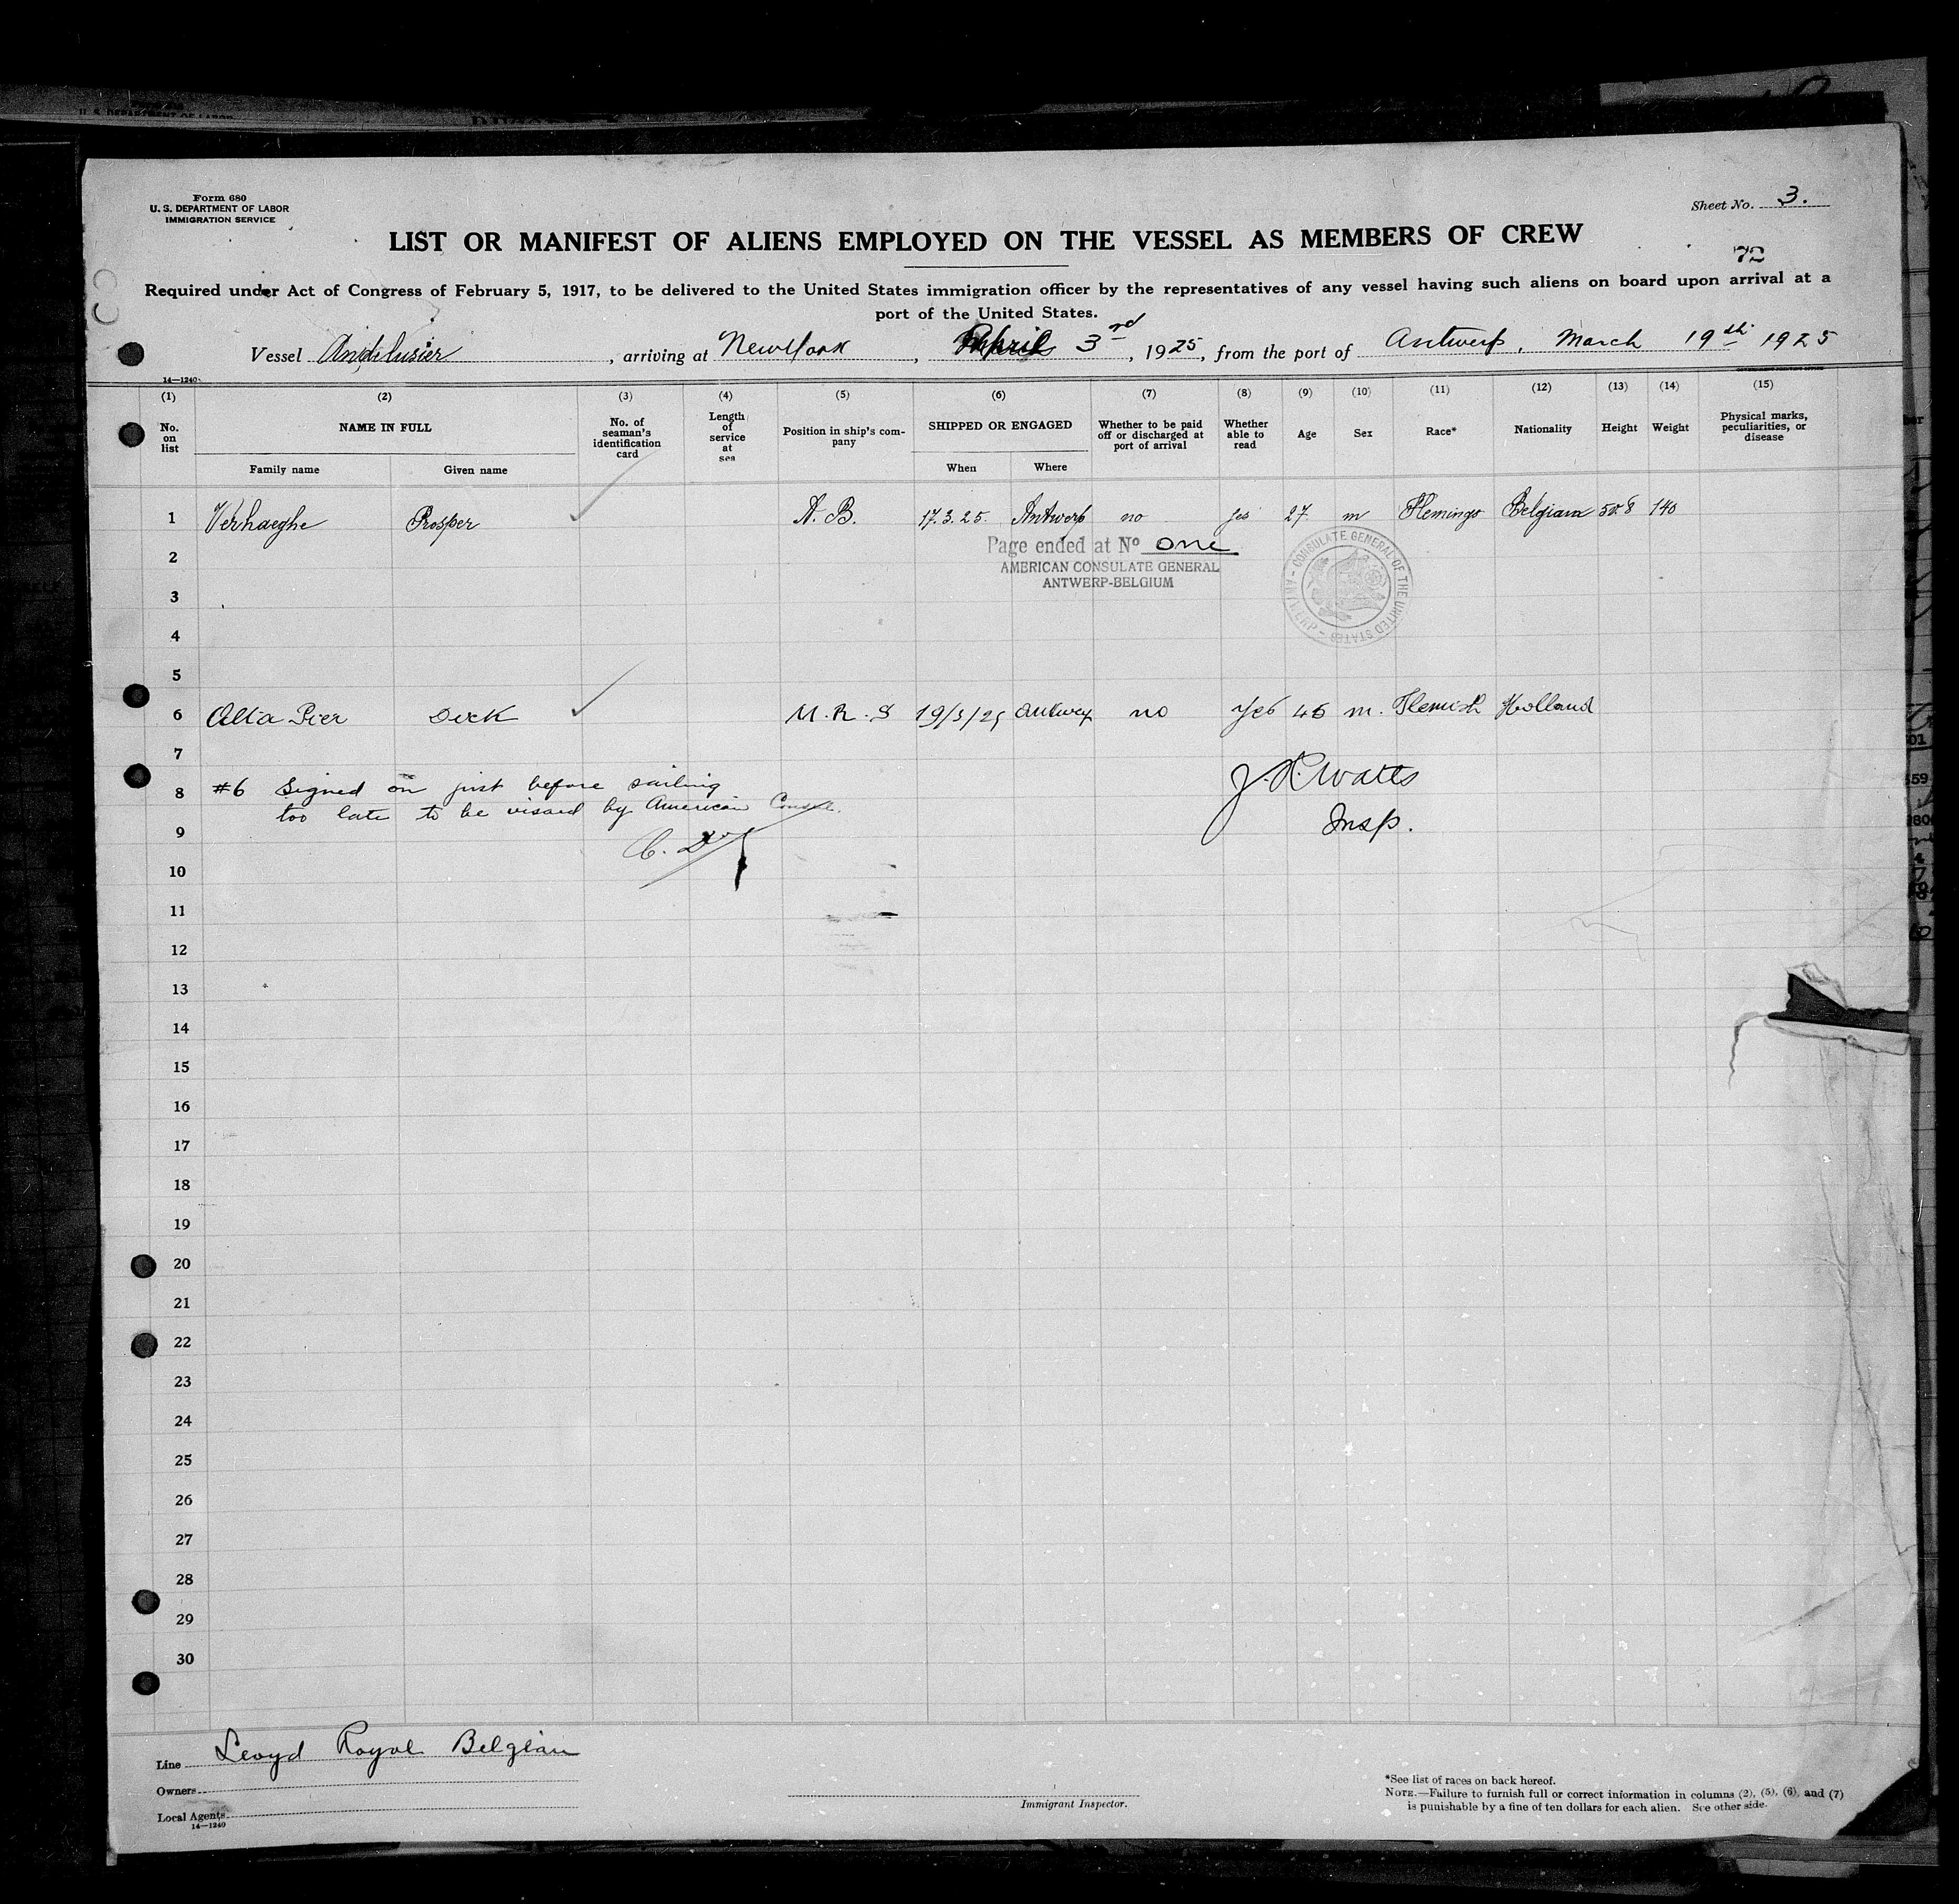 Form 680
U. S. DEPARTMENT OF LABOR
IMMIGRATION SERVICE
Sheet No. 3.
LIST OR MANIFEST OF ALIENS EMPLOYED ON THE VESSEL AS MEMBERS OF CREW
72
Required under Act of Congress of February 5, 1917, to be delivered to the United States immigration officer by the representatives of any vessel having such aliens on board upon arrival at a
port of the United States.
Vessel Andalusier, arriving at New York, April 3rd, 1925, from the port of Antwerp, March 19th 1925
14—1240
(1) (2) (3) (4) (5) (6) (7) (8) (9) (10) (11) (12) (13) (14) (15)
No. on list NAME IN FULL No. of seaman's identification card Length of service at sea Position in ship's company SHIPPED OR ENGAGED Whether to be paid off or discharged at port of arrival Whether able to read Age Sex Race* Nationality Height Weight Physical marks, peculiarities, or disease
Family name Given name When Where
1 Verhaeghe Prosper A. B. 17.3.25. Antwerp no yes 27 m Flemings Belgian 5.8 140
2 Page ended at No one
AMERICAN CONSULATE GENERAL
ANTWERP-BELGIUM
CONSULATE GENERAL OF THE UNITED STATES - ANTWERP -
3
4
5
6 Alta Pier Dirk M. R. S 19/3/25 Antwerp no yes 46 m. Flemish Holland
7
8 #6 Signed on just before sailing
too late to be visaed by American Consul.
J. R. Watts
Insp.
9
10
11
12
13
14
15
16
17
18
19
20
21
22
23
24
25
26
27
28
29
30
Line Lloyd Royal Belgian
Owners
Local Agents
14—1240
Immigrant Inspector.
*See list of races on back hereof.
NOTE.—Failure to furnish full or correct information in columns (2), (5), (6), and (7)
is punishable by a fine of ten dollars for each alien. See other side.